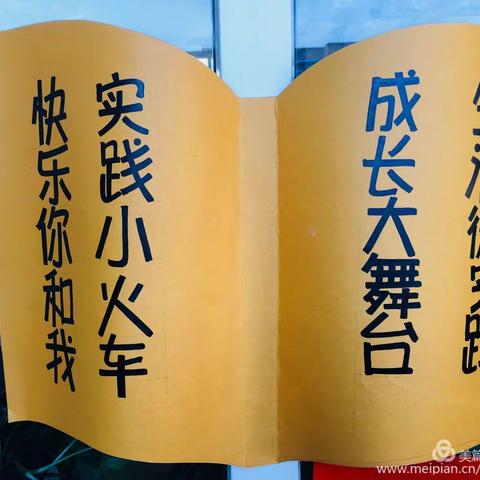 成长大舞台
实践小火车
快乐你和我
美篇
www.meipian.cn/